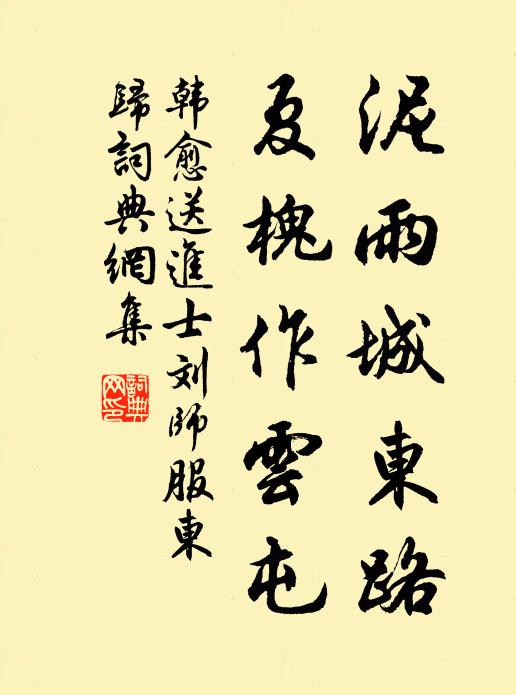 泥雨城東路
夏槐作雲屯
韩愈送進士刘師服東
歸詞典網集
詞典
网印